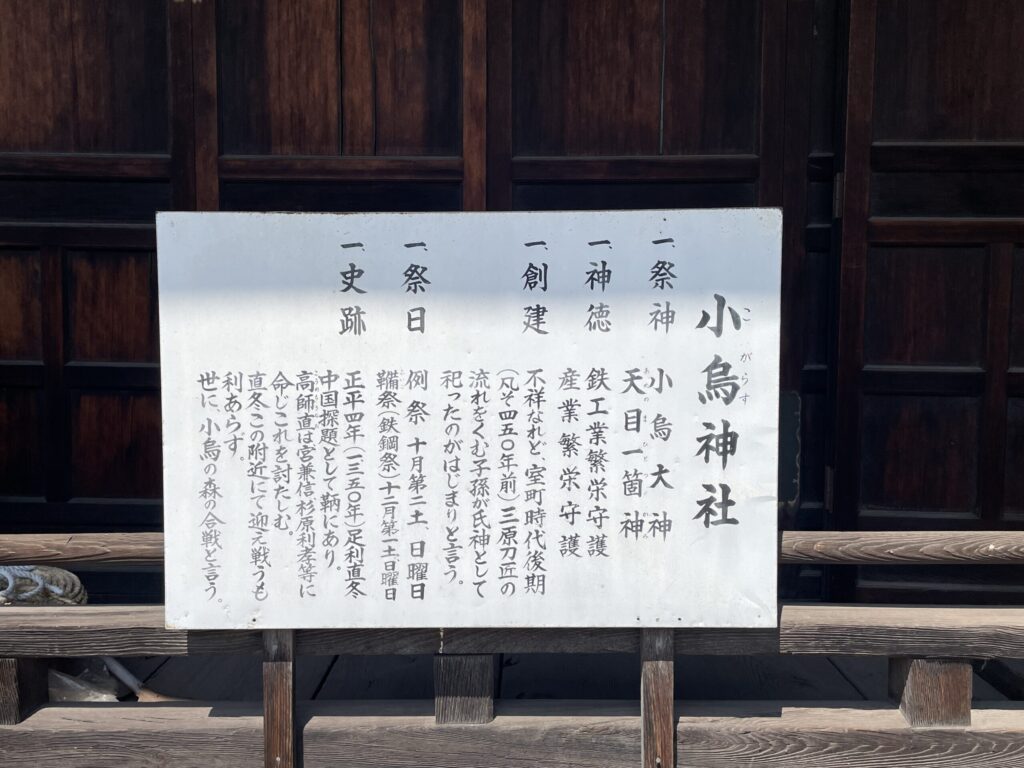 小烏神社
こがらす
一、祭神 小烏大神
天目一箇神
あめのまひとつのかみ
一、神徳 鉄工業繁栄守護
産業繁栄守護
一、創建 不祥なれど、室町時代後期
(凡そ四五〇年前)三原刀匠の
流れをくむ子孫が氏神として
祀ったのがはじまりと言う。
一、祭日 例祭 十月第二土、日曜日
鞴祭(鉄鋼祭)十二月第一土日曜日
一、史跡 正平四年(一三五〇年)足利直冬
中国探題として鞆にあり。
高師直は宮兼信、杉原利孝等に
命じこれを討たしむ。
直冬この附近にて迎え戦うも
利あらず。
世に、小烏の森の合戦と言う。